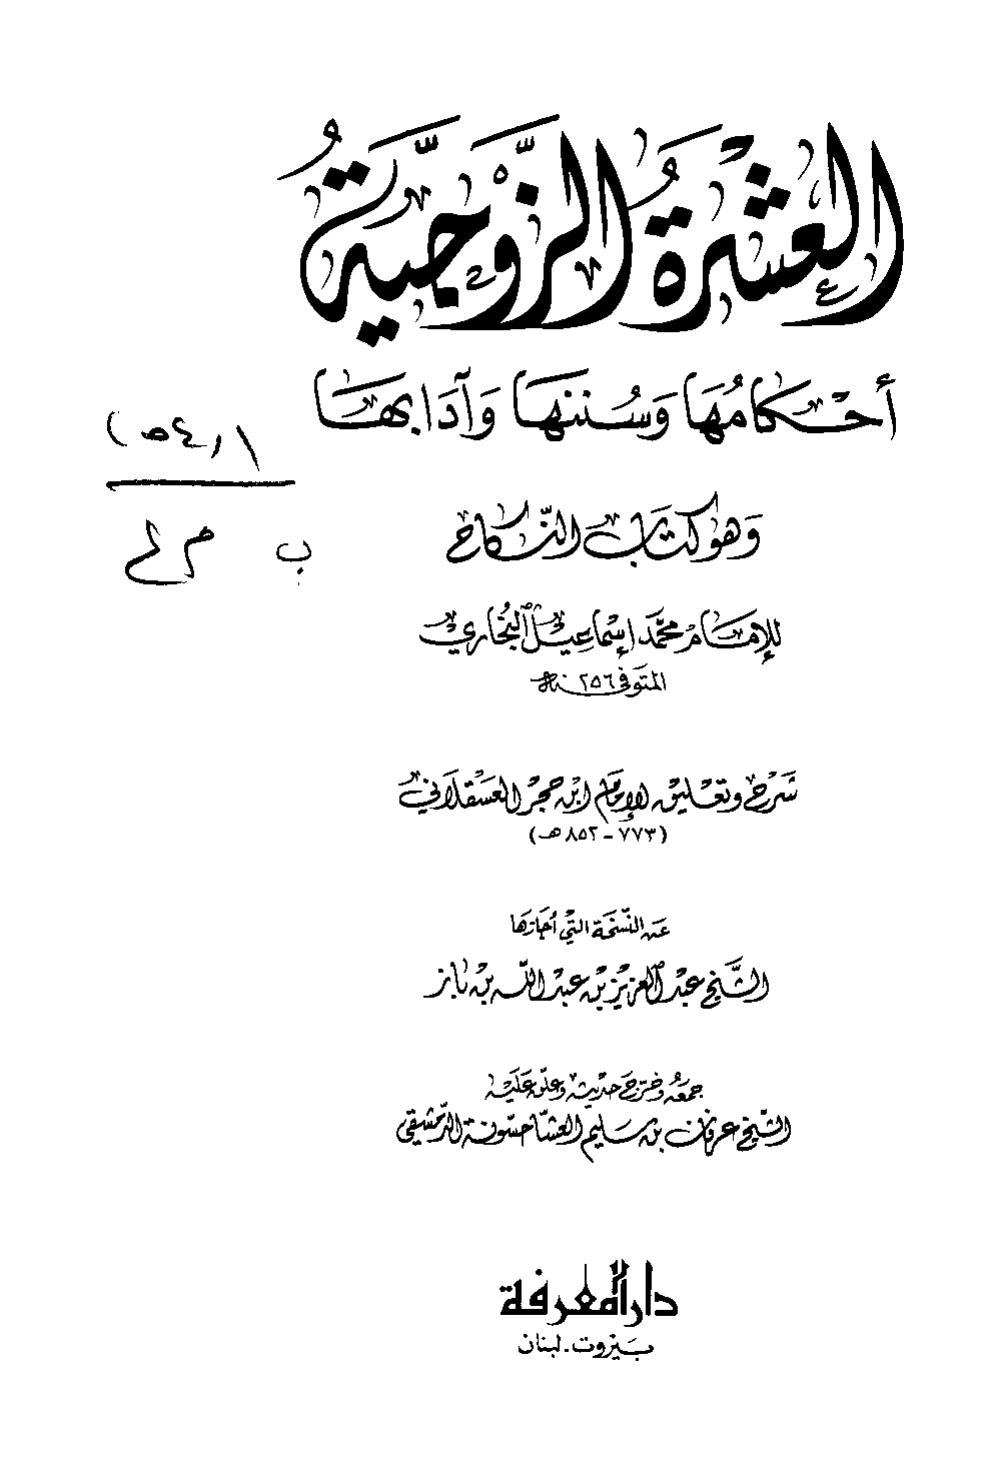 العِشْرَةُ الزَّوْجِيَّةُ
أحْكَامُهَا وَسُنَنُهَا وَآدَابُهَا
وَهُوَ كِتَابُ النِّكَاحِ
للإمَام محمَّد إسْمَاعِيل البُخَاري
المتوَفى ٢٥٦ هـ
شَرْح وتعْليق الإمَام ابْن حجر العَسْقلَاني
(٧٧٣ - ٨٥٢ هـ)
عَن النّسْخَة التي أجَازَهَا
الشَّيْخ عبْد العَزيْز بْن عبْد اللّه بْن بَاز
جمَعَهُ وَخرَّجَ حَديثَه وَعلّق عَلَيْه
الشّيخ عرفان بن سَليم العشّا حسّونة الدّمشقي
دار المعرفة
بَيْروت - لبنان